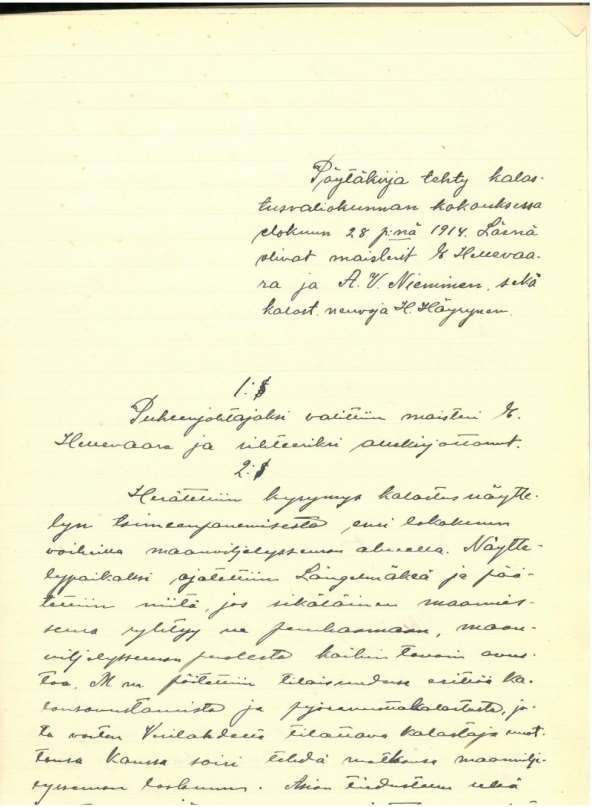 Pöytäkirja tehty kalas-
tusvaliokunnan kokouksessa
elokuun 28 p:nä 1914. Läsnä
olivat maisterit E. Hellevaa-
ra ja A. V. Nieminen, sekä
kalast. neuvoja H. Häyrynen.
1:§
Puheenjohtajaksi valittiin maisteri E.
Hellevaara ja sihteeriksi allekirjottanut.
2:§
Herätettiin kysymys kalastusnäytte-
lyn toimeenpanemisesta ensi lokakuun
maanviljelysseuran alueella. Näytte-
lypaikaksi ajateltiin Längelmäkeä ja pää-
tettiin niitä, jos sikäläinen maamies-
seura ryhtyy maan-
viljelysseuran puolesta kaikin tavoin avus-
taa. M m päätettiin tilaisuudessa esittää ka-
lansavustamista ja
ta varten tilattava kalastaja
kanssa saisi tehdä matkansa maanvilje-
lysseuran laskuun. Asian sekä